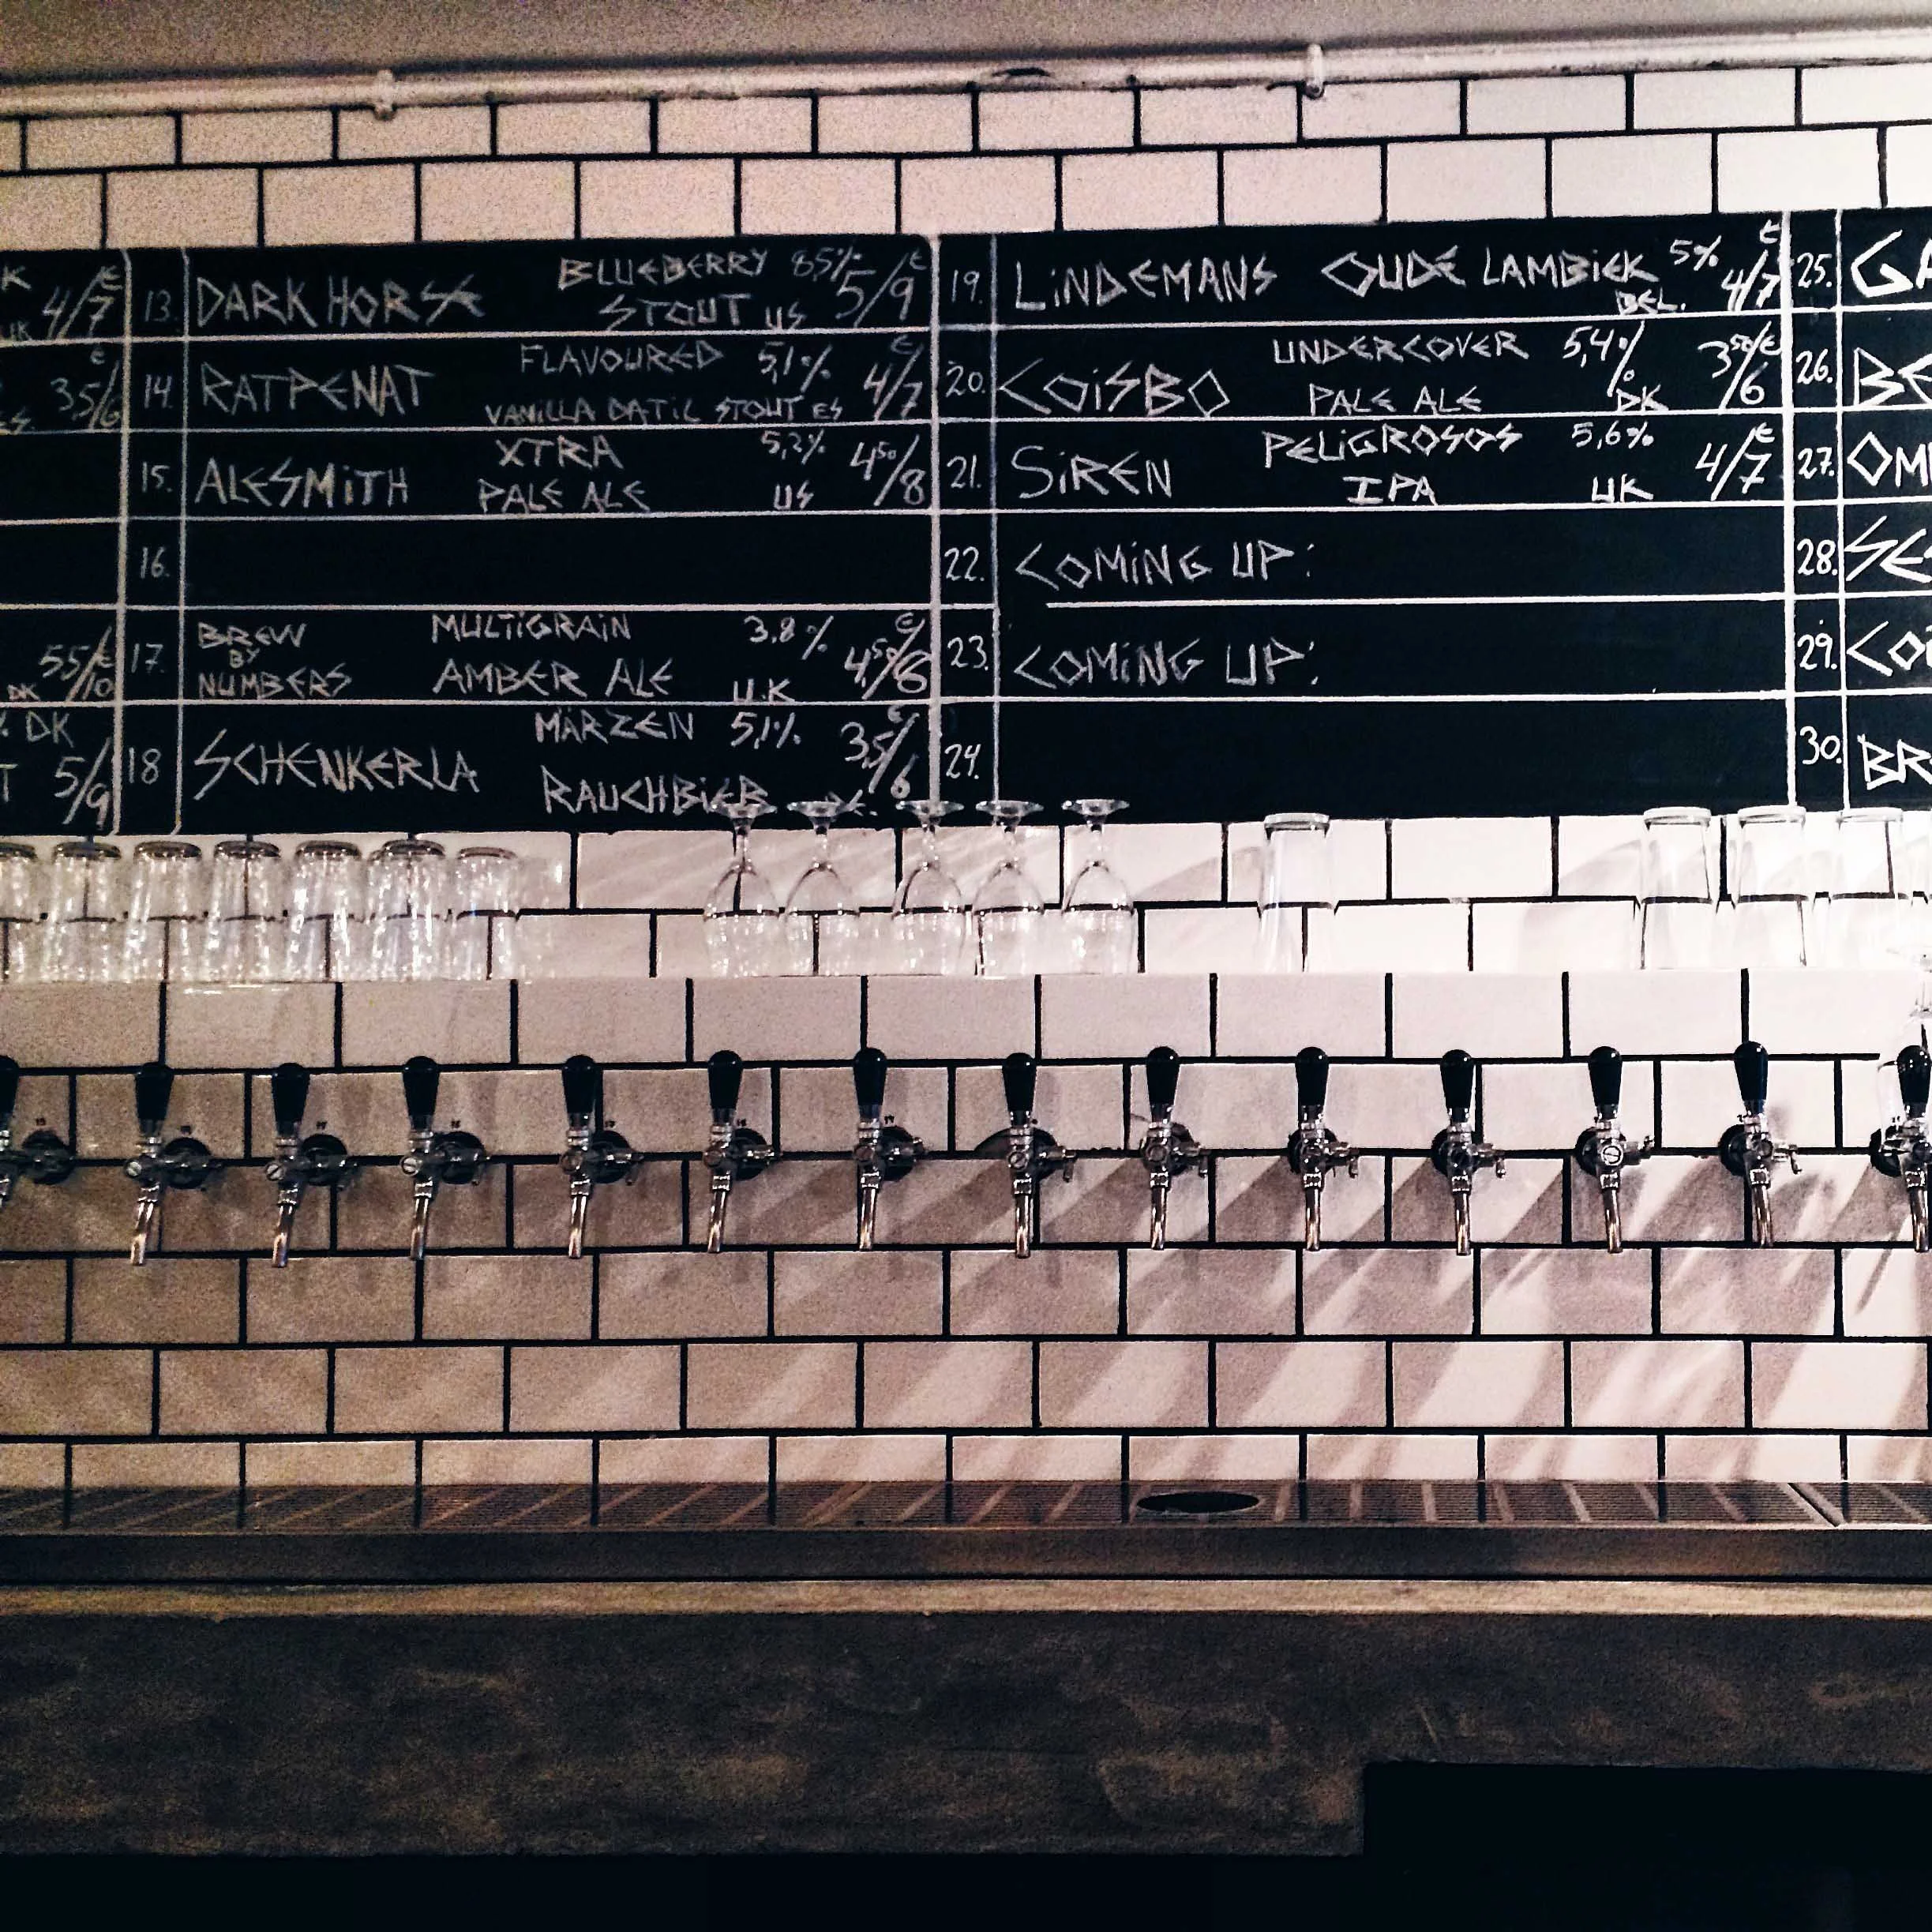 K
UK 4/7 €
3,5/6 €
ES.
5,5/10 €
DK
DK
T 5/9
13. DARK HORSE BLUEBERRY STOUT 8,5% US 5/9 €
14. RATPENAT FLAVOURED VANILLA DATIL STOUT 5,1% ES 4/7 €
15. ALESMITH XTRA PALE ALE 5,2% US 4⁵⁰/8
16.
17. BREW BY NUMBERS MULTIGRAIN AMBER ALE 3,8% U.K 4,⁵⁰/6 €
18 SCHENKERLA MÄRZEN RAUCHBIER 5,1% 3,5/6 €
19. LINDEMANS OUDE LAMBIEK 5% BEL. 4/7 €
20. COISBO UNDERCOVER PALE ALE 5,4% DK 3⁵⁰/6 €
21. SIREN PELIGROSOS IPA 5,6% UK 4/7 €
22. COMING UP:
23. COMING UP:
24.
25. GA
26. BE
27. OM
28. SE
29. COI
30. BR